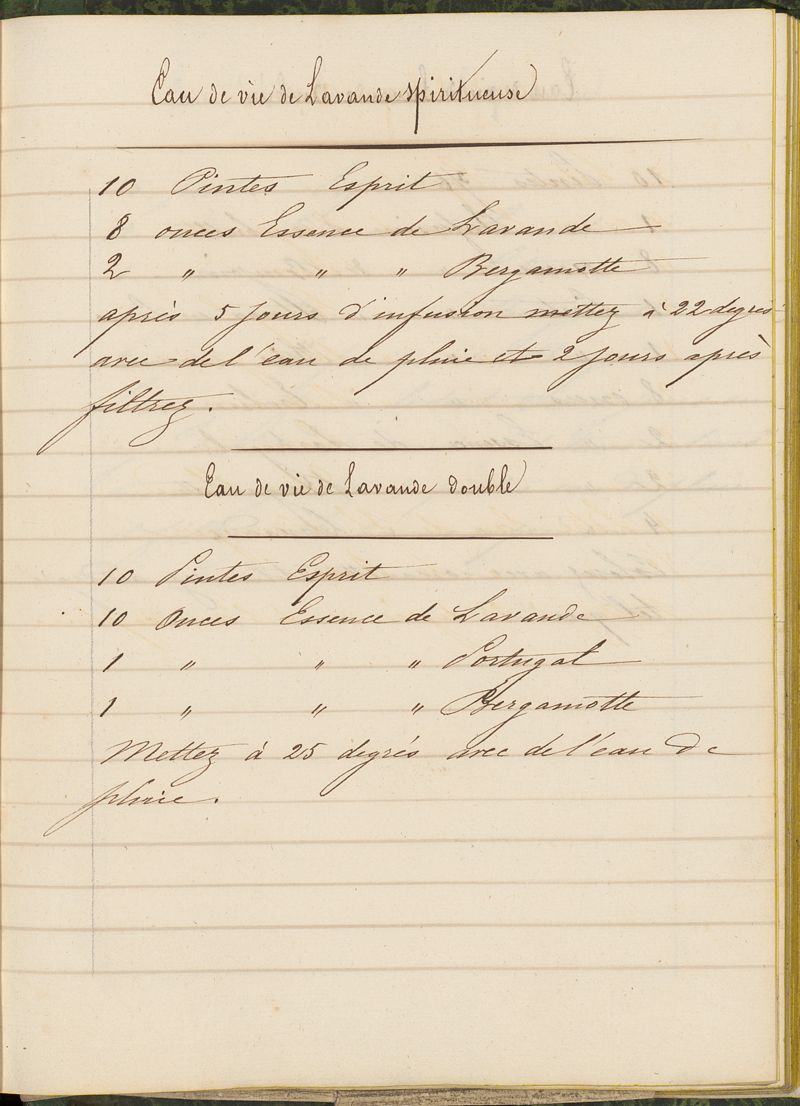 Eau de vie de Lavande spiritueuse
10 Pintes Esprit
8 onces Essence de Lavande
2 " " " Bergamotte
après 5 jours d'infusion mettez à 22 degrés
avec de l'eau de pluie et 2 jours après
filtrez.
Eau de vie de Lavande double
10 Pintes Esprit
10 Onces Essence de Lavande
1 " " " Portugal
1 " " " Bergamotte
Mettez à 25 degrés avec de l'eau de
pluie.